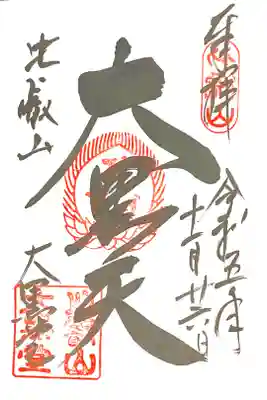 奉拝
令和五年
十二月廿六日
大黒天
比叡山
大黒堂